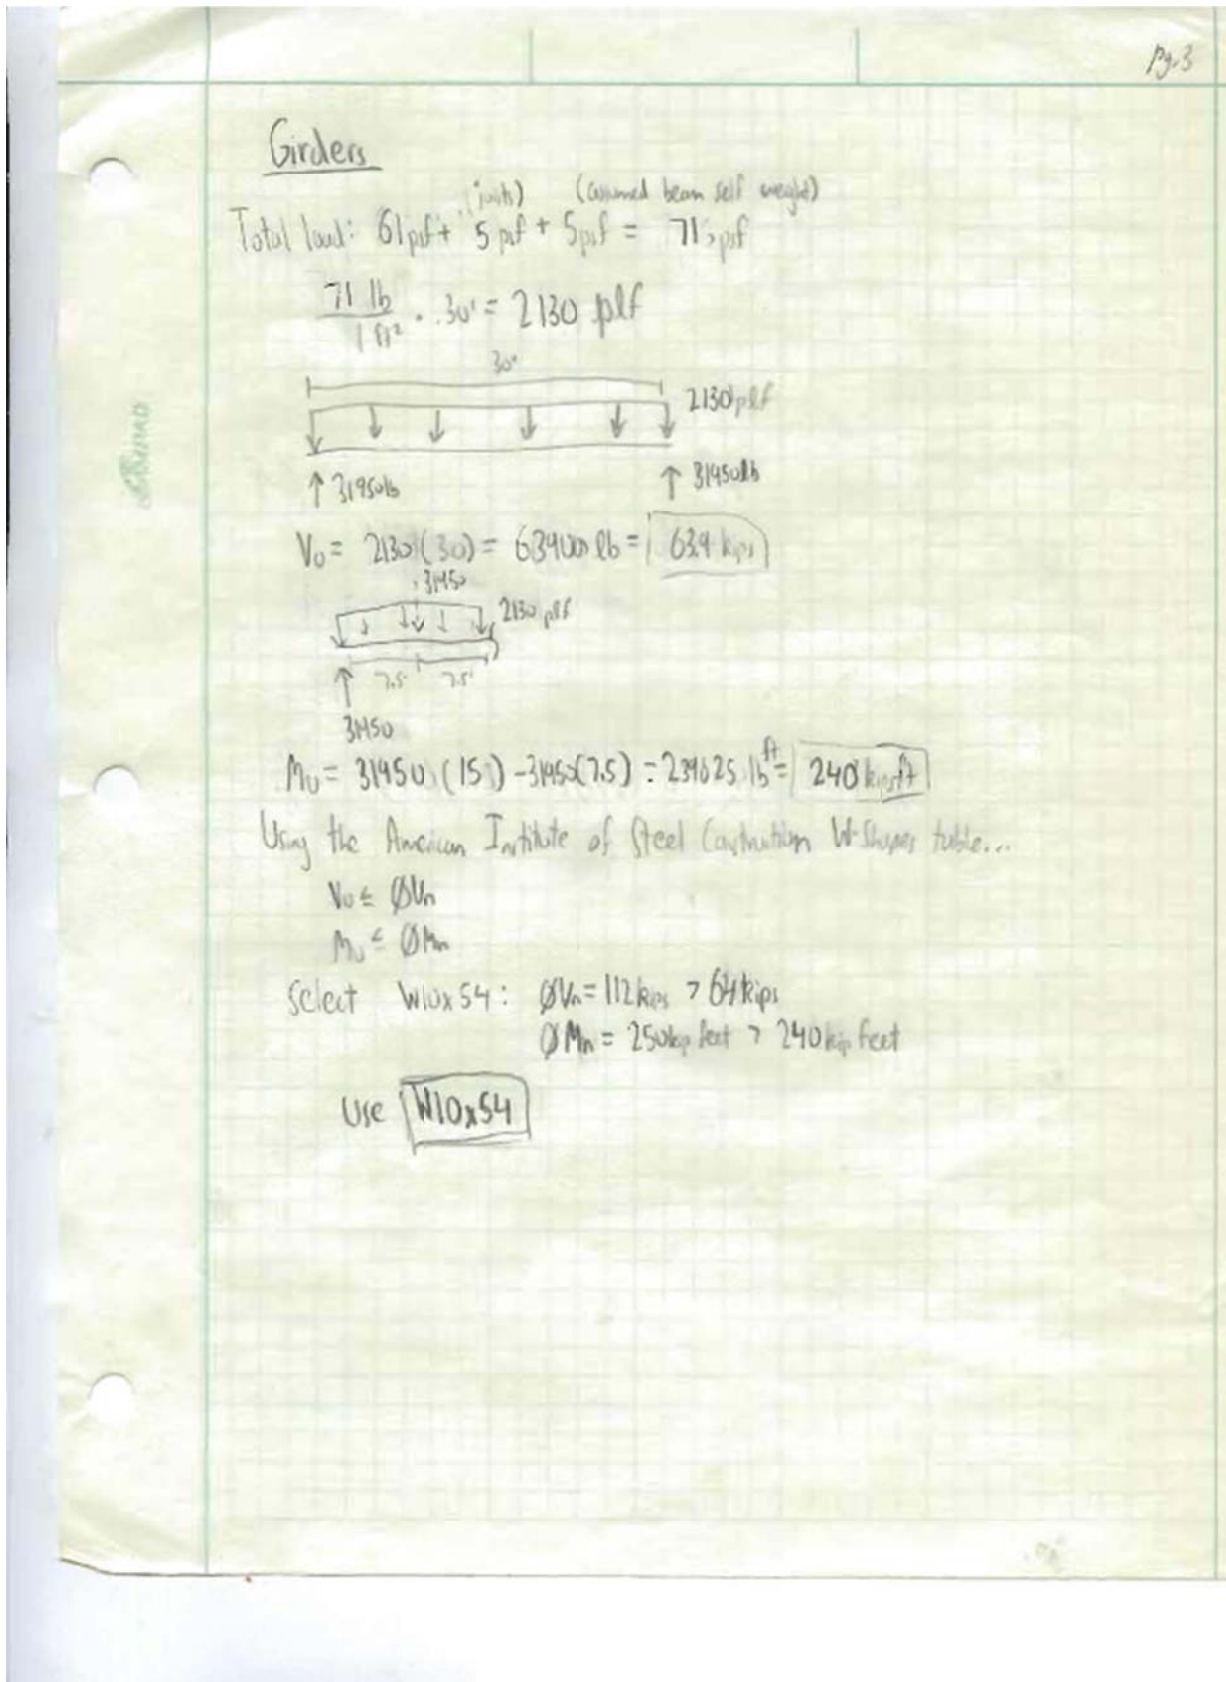 Pg. 3
Girders
(joists) (assumed beam self weight)
Total load: 61psf + 5 psf + 5psf = 71 psf
71 lb
1 ft² · 30' = 2130 plf
30'
2130 plf
↑ 31950lb ↑ 31950lb
Vu = 2130 (30) = 63900 lb = 63.9 kips
31950
2130 plf
7.5 7.5'
31950
Mu = 31950 (15) - 31950(7.5) = 239625 lb ft = 240 kips ft
Using the American Institute of Steel Construction W-Shapes table...
Vu ≤ ØVn
Mu ≤ ØMn
Select W10x54: ØVn = 112 kips > 64 kips
ØMn = 250 kip feet > 240 kip feet
Use W10x54